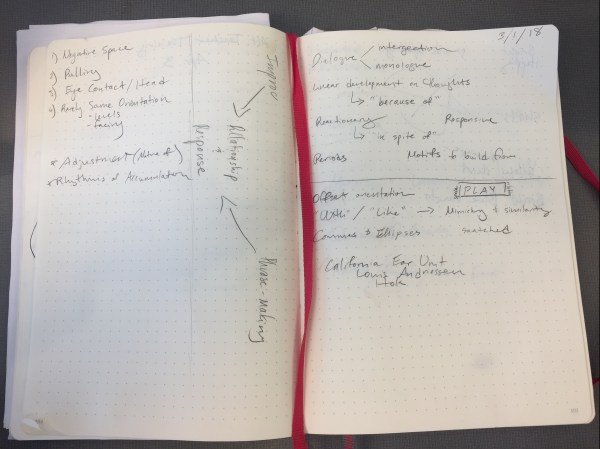 1) Negative Space
2) Pulling
3) Eye Contact / Head
4) Rarely Same Orientation
- levels
- facing
* Adjustment (Nature of)
* Rhythms of Accumulation
Improv
Relationship
+
Response
Phrase-Making
3/1/18
Dialogue
interjection
monologue
Linear development on thoughts
↳ "because of"
Reactionary Responsive
↳ "in spite of"
Periods Motifs to build from
Offset orientation PLAY
"With" / "Like" → Mimicry & similarity
Commas & Ellipses snatched
California Ear Unit
Louis Andriessen
Hok